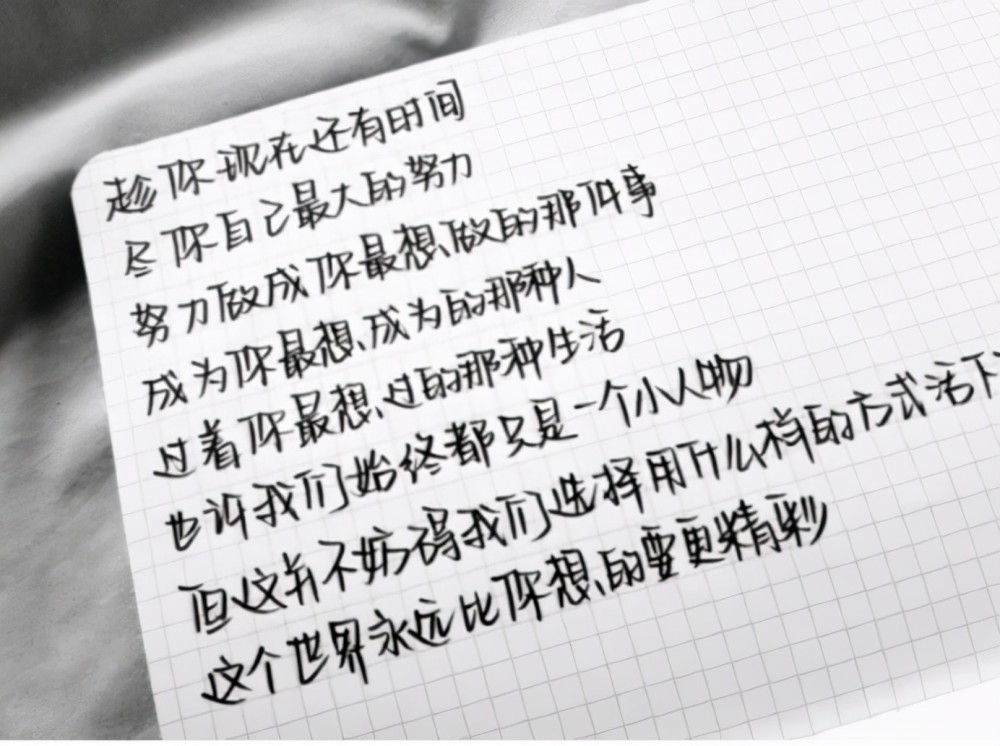 趁你现在还有时间
尽你自己最大的努力
努力做成你最想做的那件事
成为你最想成为的那种人
过着你最想过的那种生活
也许我们始终都只是一个小人物
但这并不妨碍我们选择用什么样的方式活下
这个世界永远比你想的要更精彩